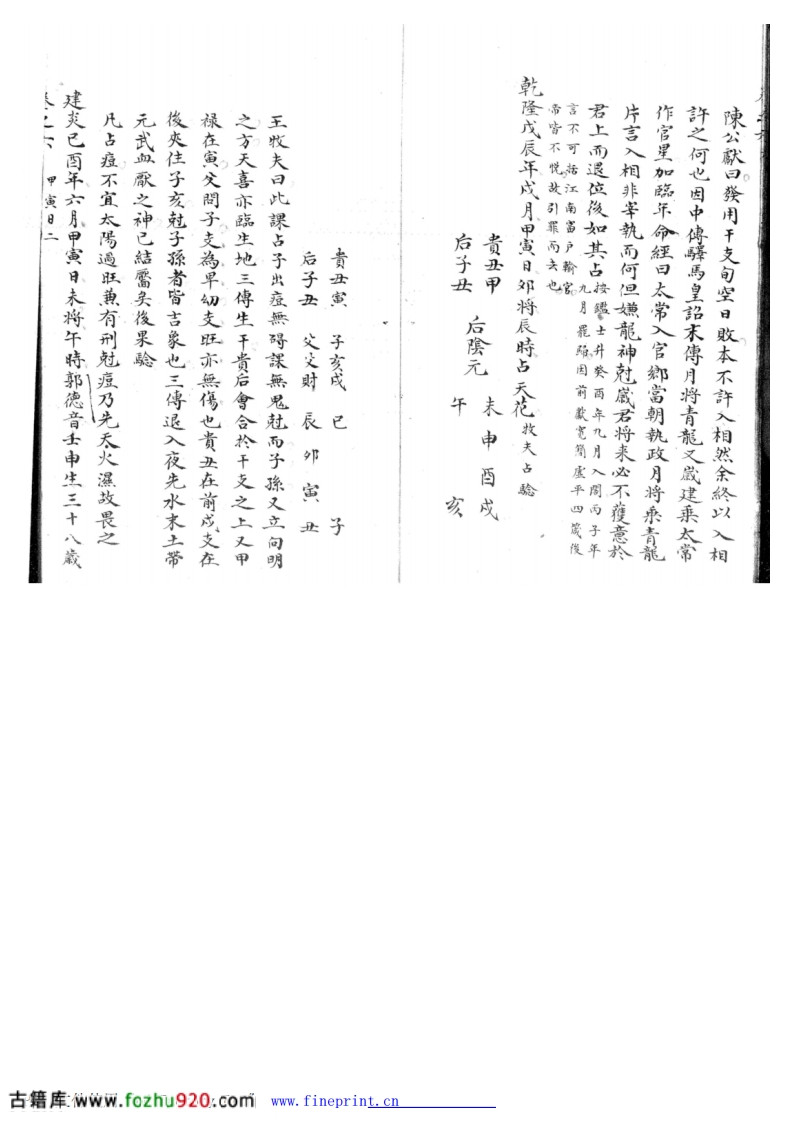 陳公獻曰發用干支旬空日敗本不許入相然余終以入相
許之何也因中傳驛馬皇詔末傳月將青龍又歲建乘太常
作官星加臨年命經曰太常入官鄉當朝執政月將乘青龍
片言入相非宰執而何但嫌龍神尅歲君將來必不獲意於
君上而退位後如其占
按鑑士升癸酉年九月入閣丙子年
九月罷歸因前歲寬簡虛平四箴後
言不可括江南富戶輸官
帝皆不悅故引罪而去也
乾隆戊辰年戌月甲寅日夘將辰時占天花 牧夫占驗
貴丑甲
后子丑
后陰元
未申酉戌
午
亥
貴丑寅 子亥戌 巳 子
后子丑 父父財 辰夘寅丑
王牧夫曰此課占子出痘無碍課無鬼尅而子孫又立向明
之方天喜亦臨生地三傳生干貴后會合於干支之上又甲
禄在寅父問子支為卑幼支旺亦無傷也貴丑在前戌支在
後夾住子亥尅子孫者皆吉象也三傳退入夜先水末土帶
元武血厭之神已結靨矣後果驗
凡占痘不宜太陽過旺兼有刑尅痘乃先天火濕故畏之
建炎己酉年六月甲寅日未將午時郭德音壬申生三十八歲
卷之六 甲寅日二
古籍库 www.fozhu920.com
www.fineprint.cn